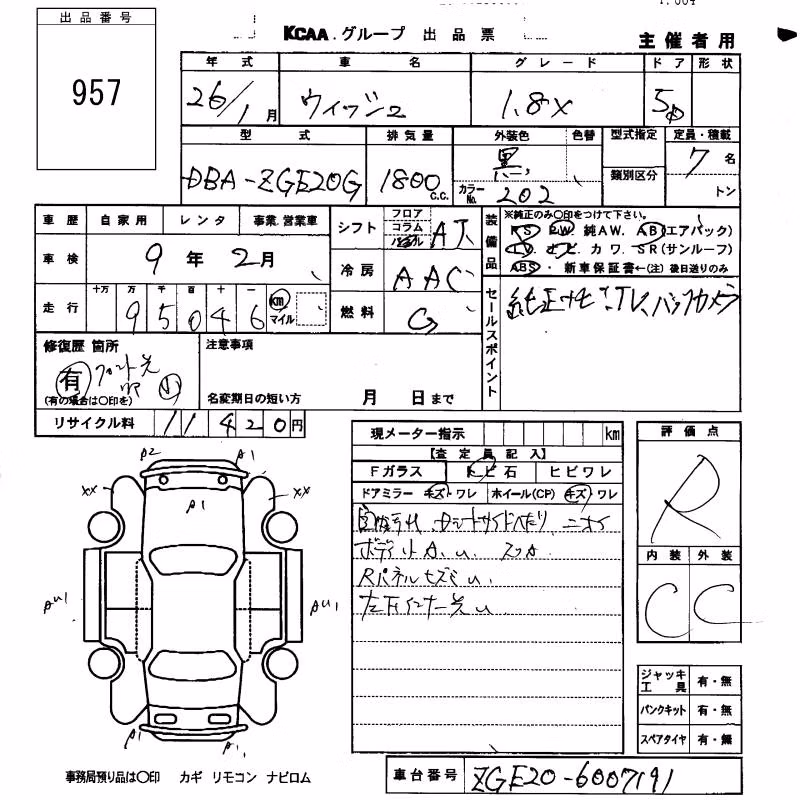 出品番号
957
KCAA.グループ 出品票
主催者用
年式 車名 グレード ドア 形状
26/1月 ウィッシュ 1.8X 5D
型式 排気量 外装色 色替 型式指定 定員・積載
類別区分
DBA-ZGE20G 1800 c.c. 黒 カラーNo. 202 7名
トン
車歴 自家用 レンタ 事業.営業車
シフト フロア コラム AT
装備品 ※純正のみ○印をつけて下さい。
PS PW 純AW. AB(エアバック)
LV. ナビ カワ. SR(サンルーフ)
ABS ・新車保証書←(注) 後日送りのみ
車検 9年2月
冷房 AAC
走行 十万 万 千 百 十 一
95046 km マイル
燃料 G
セールスポイント 純正ナビ.TV.バックカメラ
修復歴 箇所
有
(有の場合は○印を)
注意事項
名変期日の短い方 月 日まで
リサイクル料 11420円
現メーター指示 km
【査定員記入】
Fガラス トビ石 ヒビワレ
ドアミラー キズ・ワレ ホイール(CP) キズ・ワレ
ボディ小A.U.
RパネルヒズミU.
評価点
R
内装 外装
C C
A2 A1
A1
XX XX
AU1 AU1
A1 A1
ジャッキ工具 有・無
パンクキット 有・無
スペアタイヤ 有・無
事務局預り品は○印 カギ リモコン ナビロム
車台番号 ZGE20-6007191